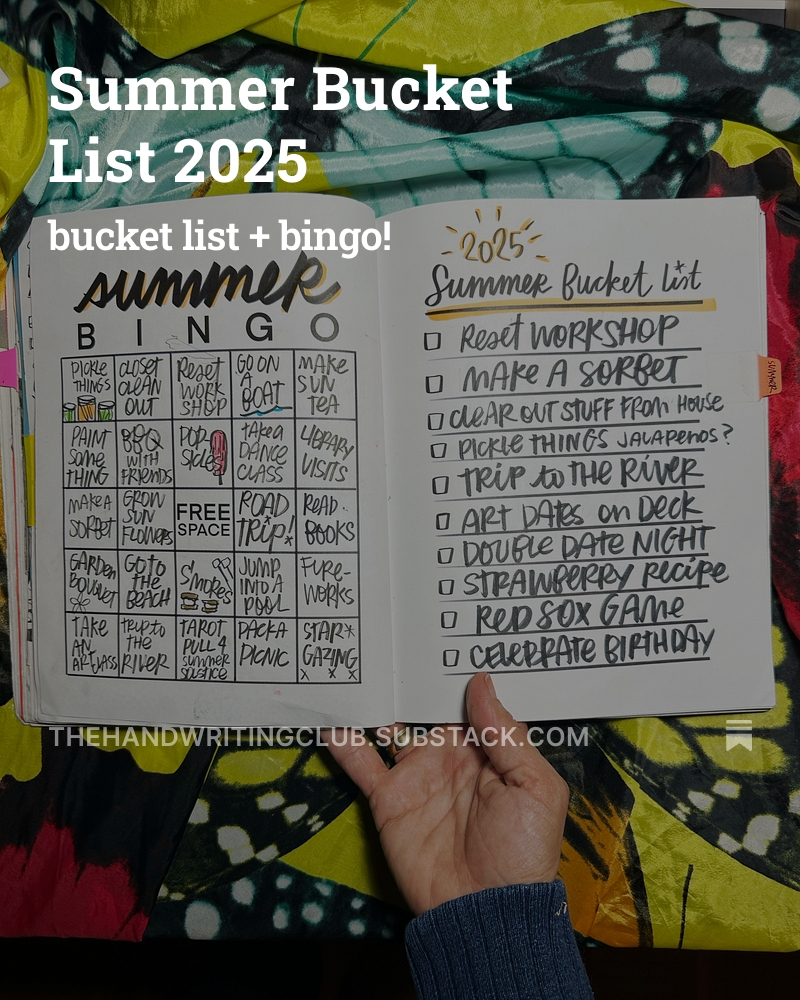 Summer Bucket
List 2025
bucket list + bingo!
summer
BINGO
PICKLE
THINGS
CLOSET
CLEAN
OUT
Reset
WORK
SHOP
GO ON
A
BOAT
MAKE
SUN
TEA
PAINT
SOME
THING
BBQ
WITH
FRIENDS
POP-
SICLES
TAKE A
DANCE
CLASS
LIBRARY
VISITS
MAKE A
SORBET
GROW
SUN
FLOWERS
FREE
SPACE
ROAD
TRIP!
READ
BOOKS
GARDEN
BOUQUET
GO to
THE
BEACH
S'mores
JUMP
INTO A
POOL
FIRE-
WORKS
TAKE
AN
ART CLASS
TRIP to
the
RIVER
TAROT
PULL 4
summer
SOLSTICE
PACK A
PICNIC
STAR
GAZING
2025
Summer Bucket List
Reset WORKSHOP
MAKE A SORBET
CLEAR OUT STUFF FROM HOUSE
PICKLE THINGS JALAPENOS?
TRIP to THE RIVER
ART DATES on DECK
DOUBLE DATE NIGHT
STRAWBERRY RECIPE
RED SOX GAME
CELEBRATE BIRTHDAY
SUMMER
THEHANDWRITINGCLUB.SUBSTACK.COM